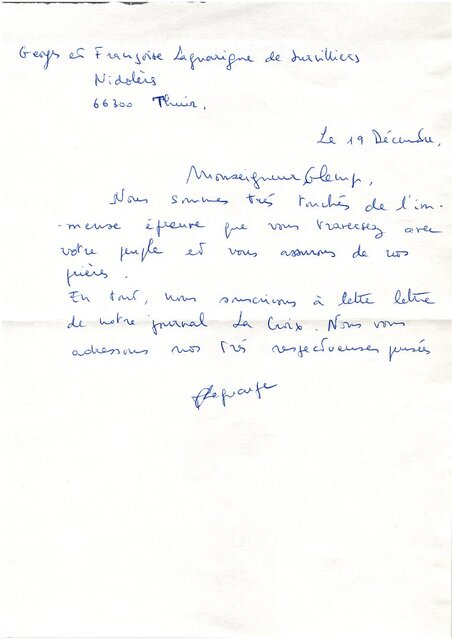 Georges et Françoise Laguarigue de Survilliers
Nidolères
66300 Thuir.
Le 19 Décembre,
Monseigneur Glemp,
Nous sommes très touchés de l'im-
-mense épreuve que vous traversez avec
votre peuple et vous assurons de nos
prières.
En tout, nous souscrivons à cette lettre
de notre journal La Croix. Nous vous
adressons nos très respectueuses pensées